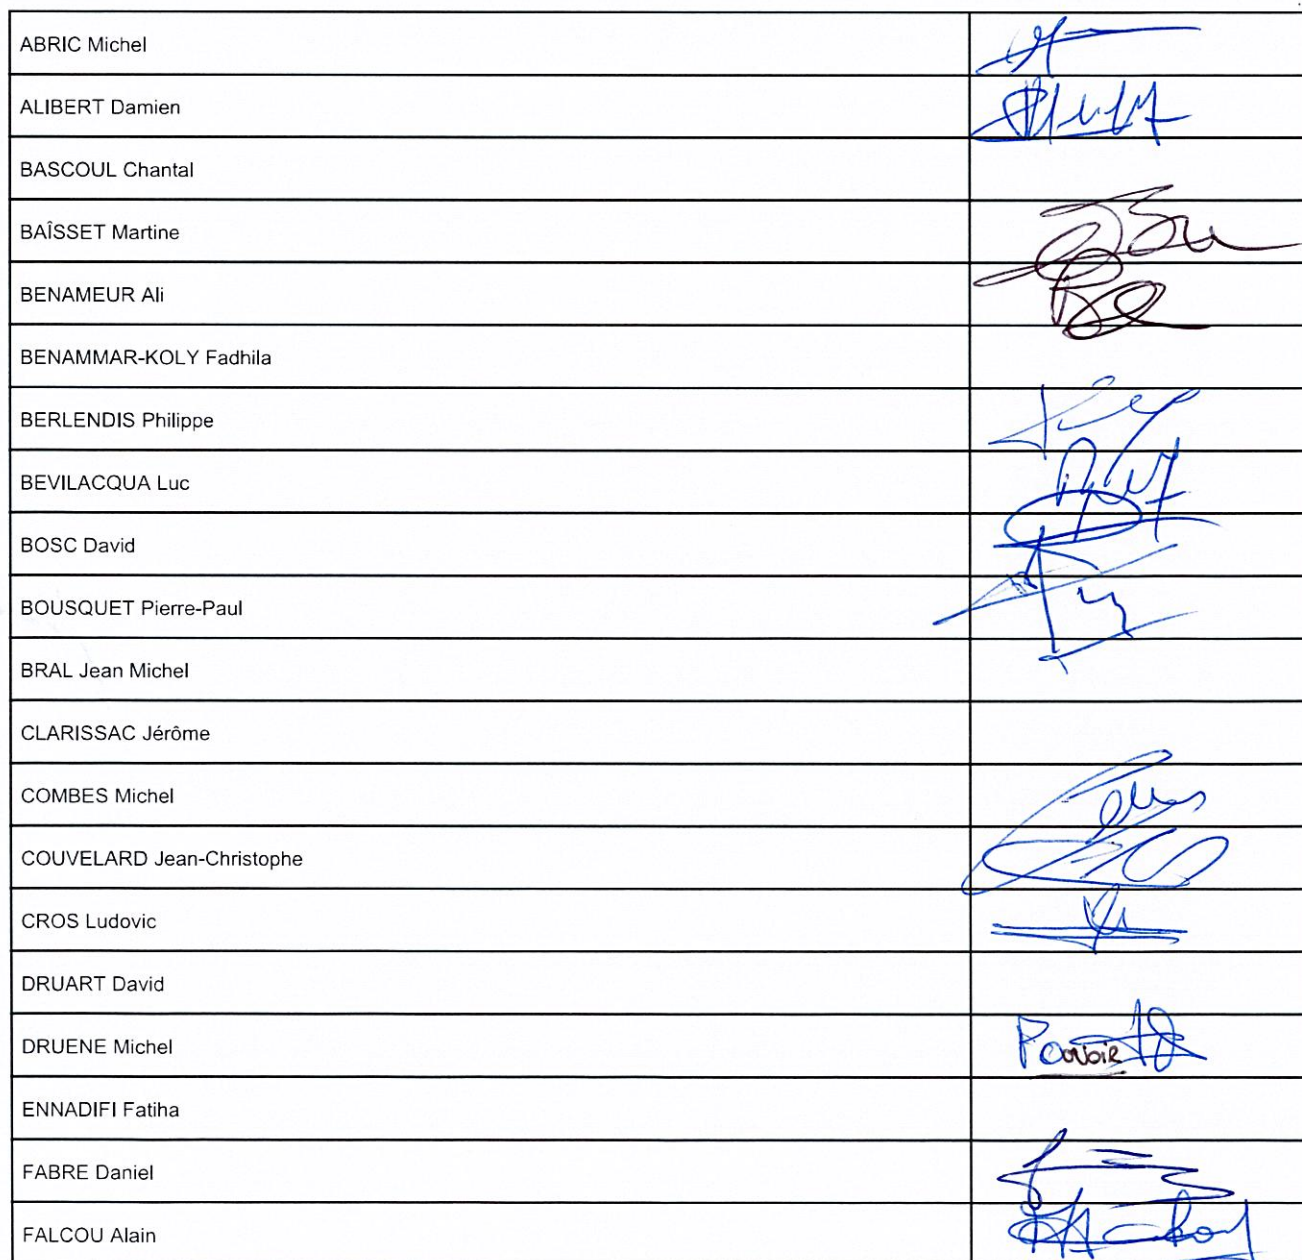 ABRIC Michel
ALIBERT Damien
BASCOUL Chantal
BAÎSSET Martine
BENAMEUR Ali
BENAMMAR-KOLY Fadhila
BERLENDIS Philippe
BEVILACQUA Luc
BOSC David
BOUSQUET Pierre-Paul
BRAL Jean Michel
CLARISSAC Jérôme
COMBES Michel
COUVELARD Jean-Christophe
CROS Ludovic
DRUART David
DRUENE Michel Pouvoir
ENNADIFI Fatiha
FABRE Daniel
FALCOU Alain